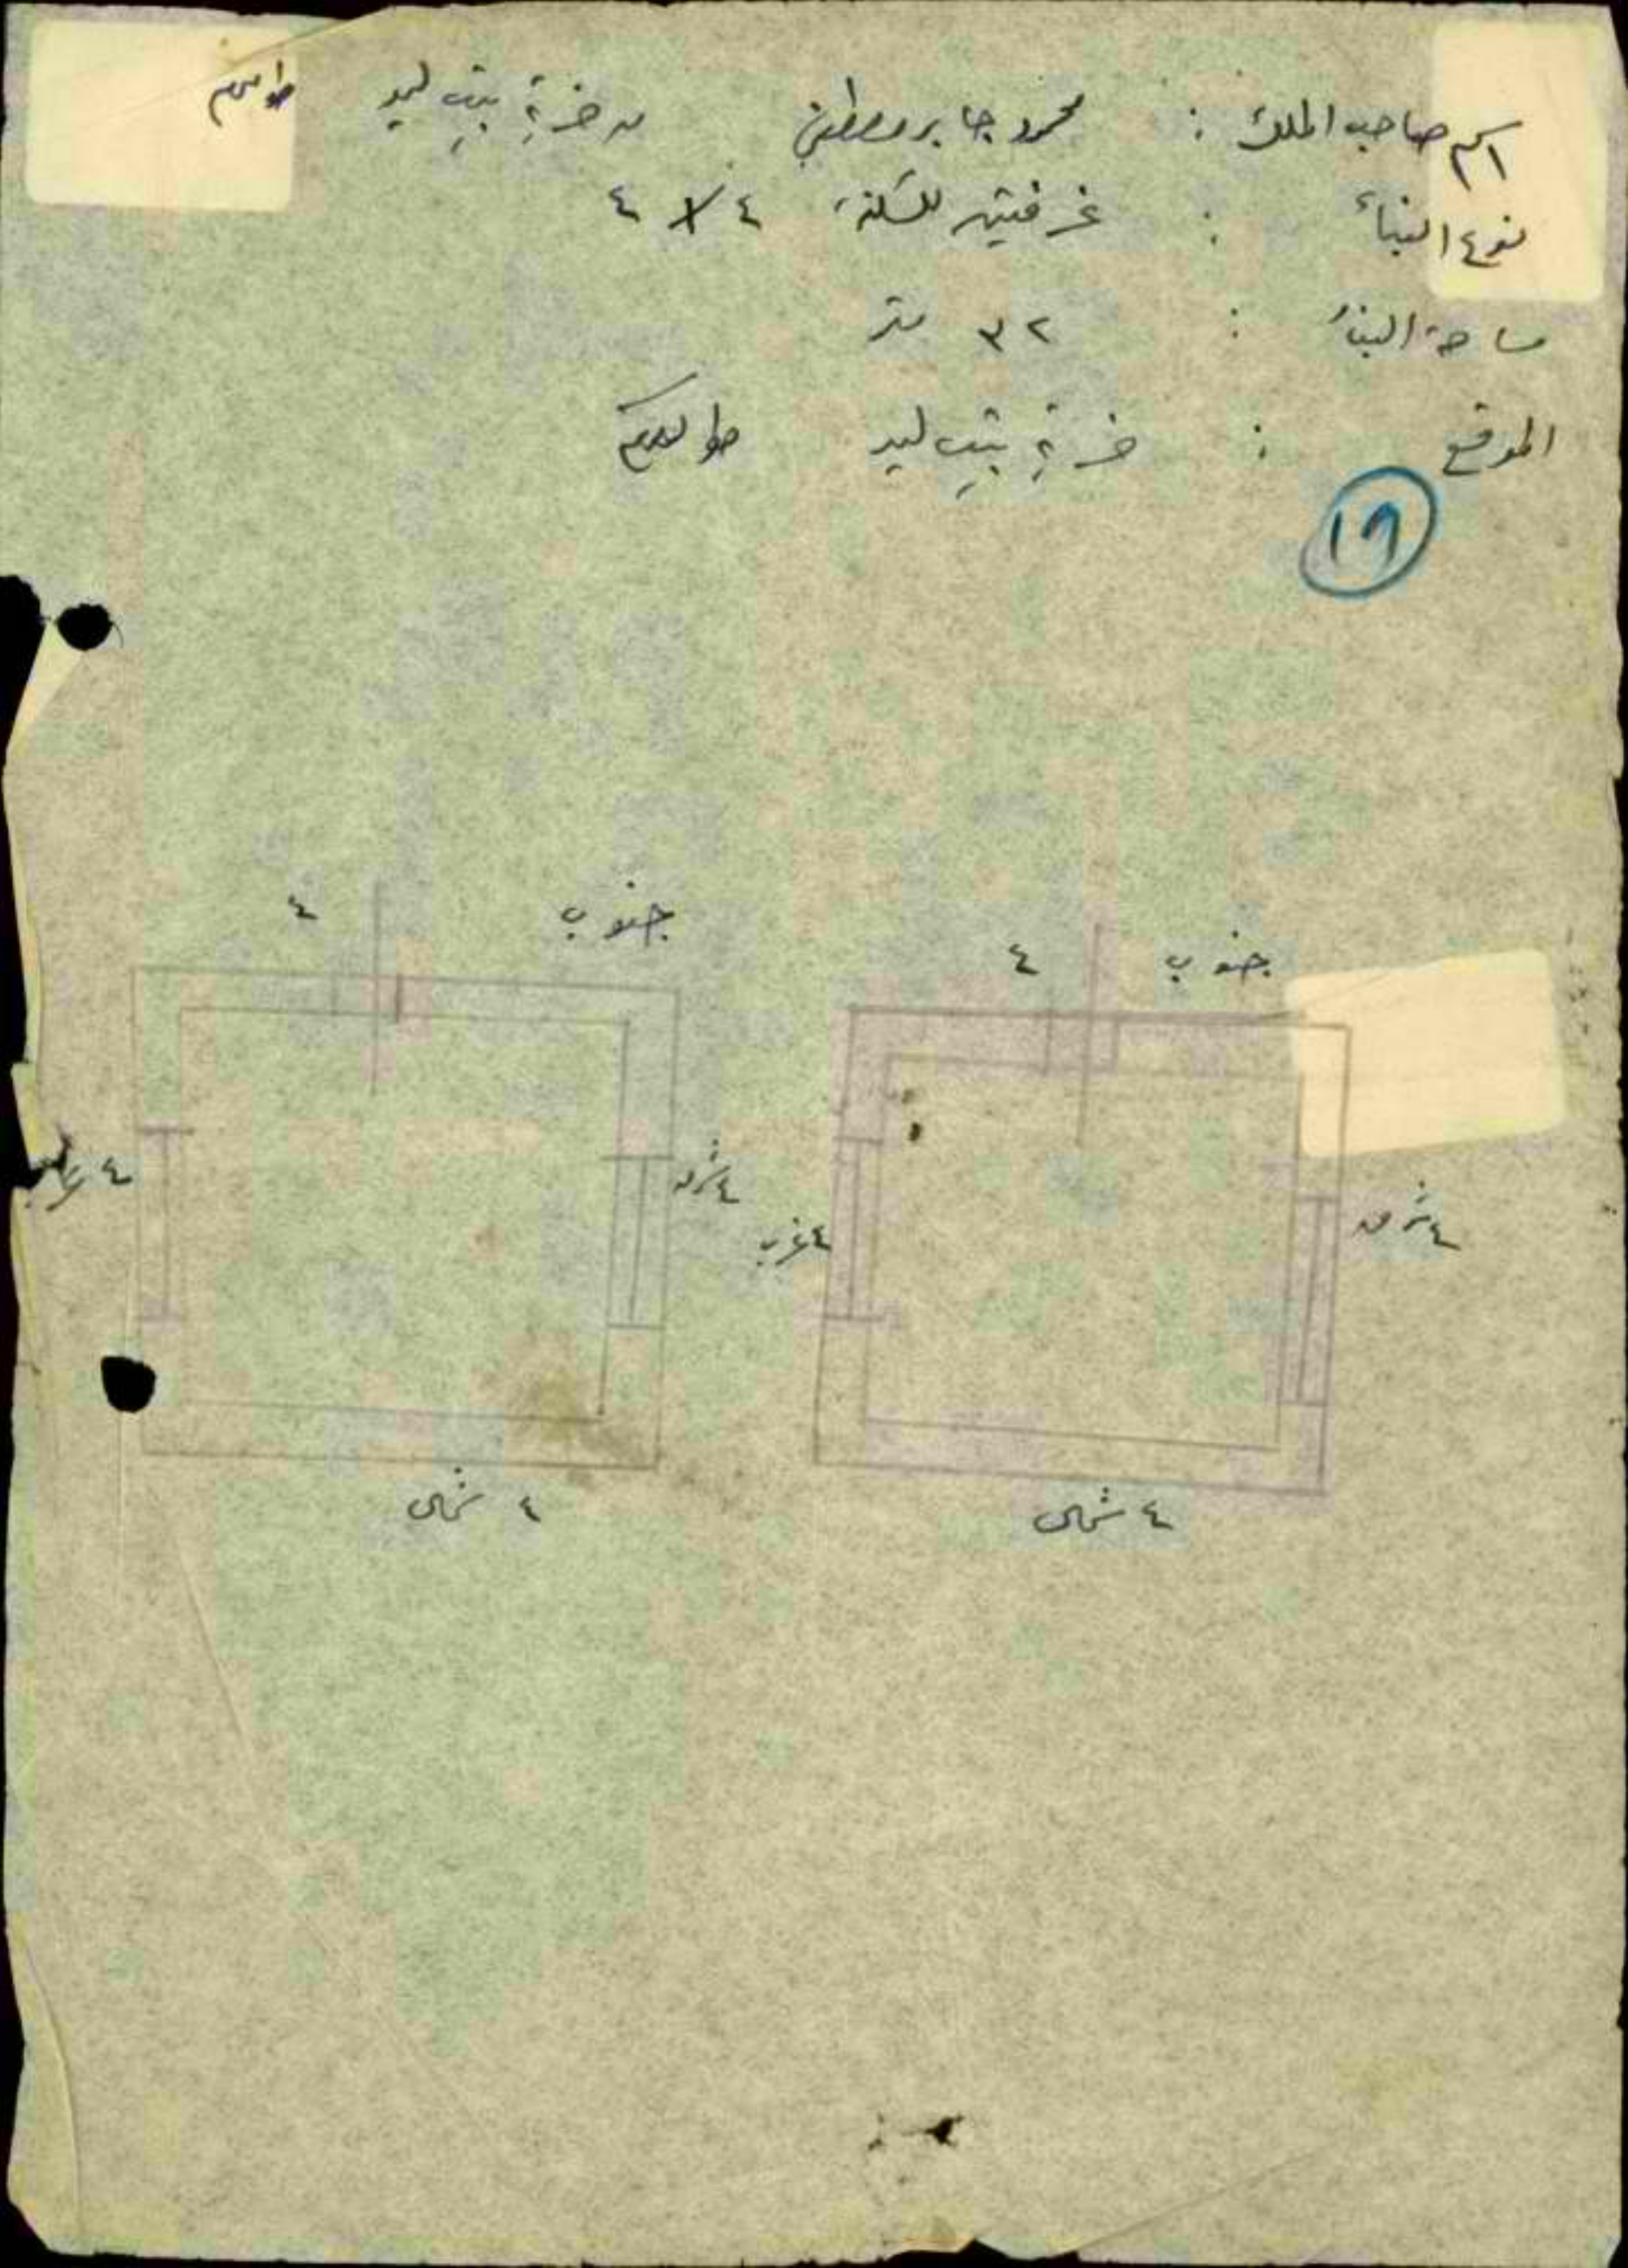 اسم صاحب الملك : محمود جابر مصطفى من خربة بيت ليد طولكرم
نوع البناء : غرفتين للسكن ٤ × ٤
مساحة البناء : ٣٢ متر
الموقع : خربة بيت ليد طولكرم
١٩
جنوب ٤
٤ شرق
٤ غرب
٤ شمال
جنوب ٤
٤ شرق
٤
٤ شمال